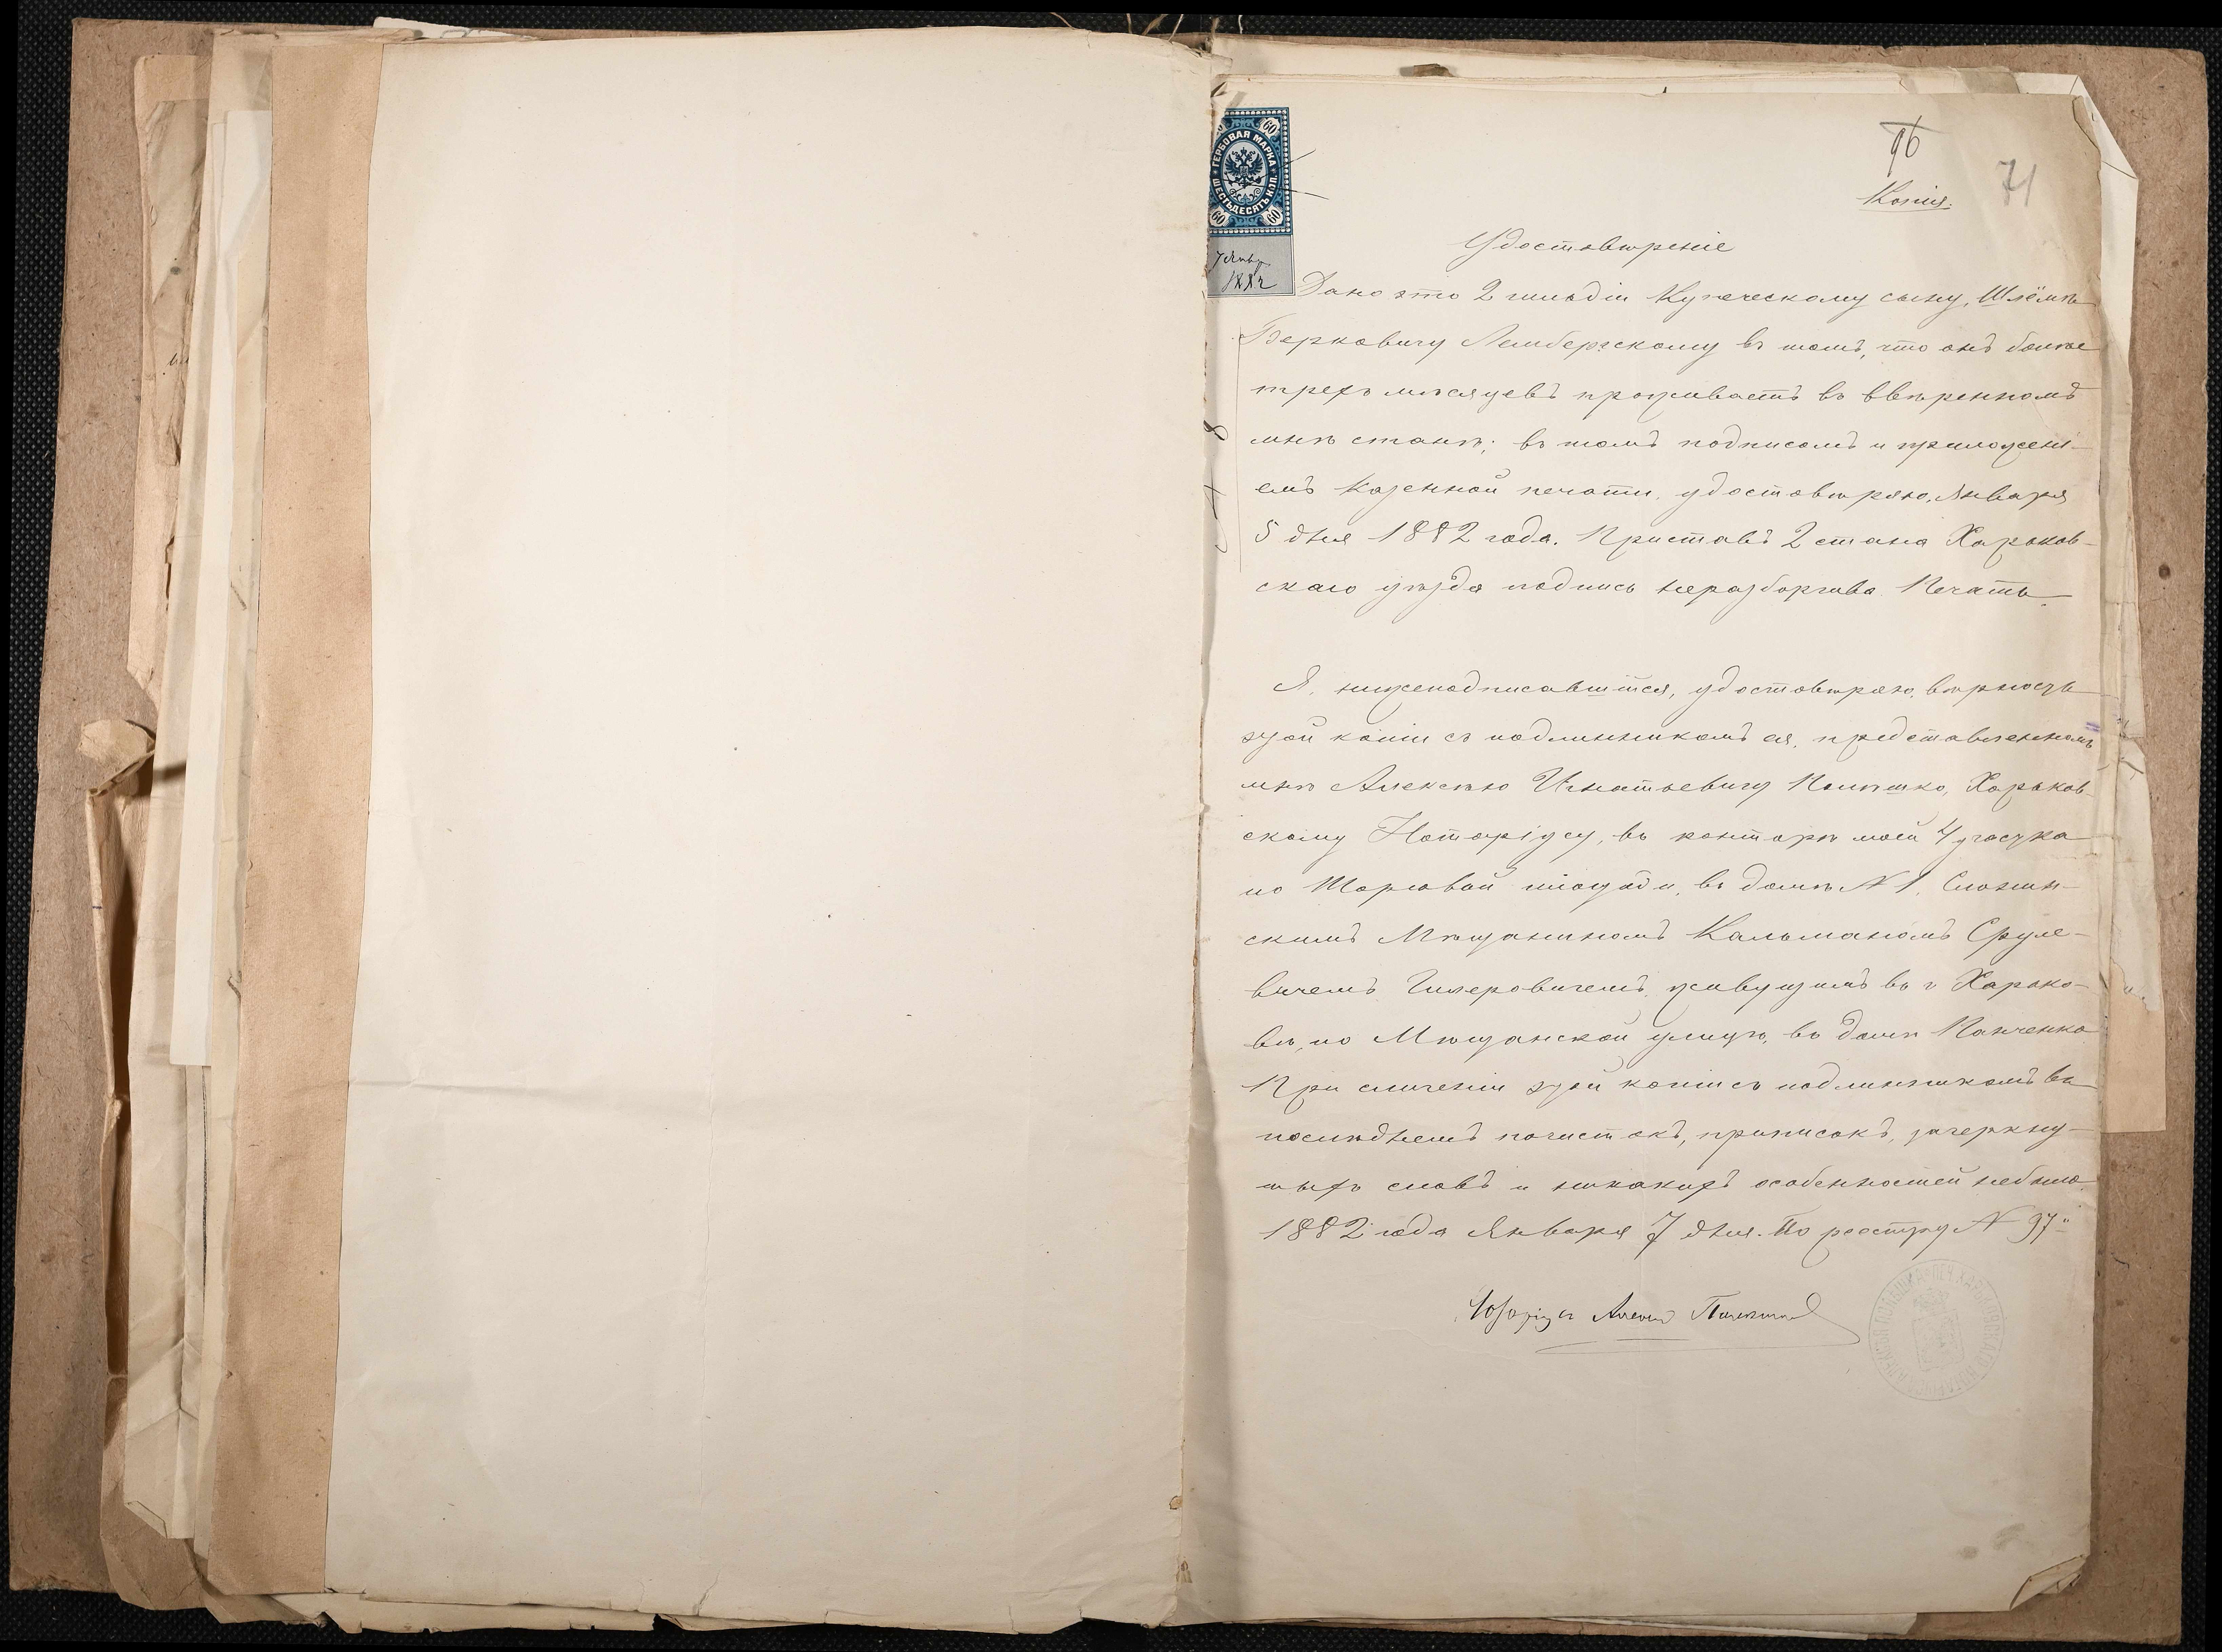 96
71
Копія.
ГЕРБОВАЯ МАРКА
ШЕСТЬДЕСЯТЪ КОП.
60
60
60
7 Янвр
1882
Удостовѣреніе
Дано это 2 гильдіи Купеческому сыну, Шлёмѣ
Берковичу Лембергскому въ томъ, что онъ болѣе
трехъ мѣсяцевъ проживаетъ въ ввѣренномъ
мнѣ станѣ; въ томъ подписомъ и приложені-
емъ казенной печати, удостовѣряю, Января
5 дня 1882 года. Приставъ 2 стана Харьков-
скаго уѣзда подпись неразборчива. Печать.
Я, нижеподписавшійся, удостовѣряю, вѣрность
этой копіи съ подлинникомъ ея, представленномъ
мнѣ Алексѣю Игнатьевичу Полѣшко, Харьков-
скому Нотаріусу, въ конторѣ моей 4 участка
по Торговой площади, въ домѣ № 1,
скимъ Мѣщаниномъ Кальманомъ Сруле-
вичемъ живущимъ въ г Харько-
вѣ, по Мѣщанской улицѣ, въ домѣ Панченко
При сличеніи этой копіи съ подлинникомъ въ
послѣднемъ почистокъ, приписокъ, зачеркну-
тыхъ словъ и никакихъ особенностей небыло.
1882 года Января 7 дня. По реестру № 97"
Нотаріусъ Алексѣй Полѣшко